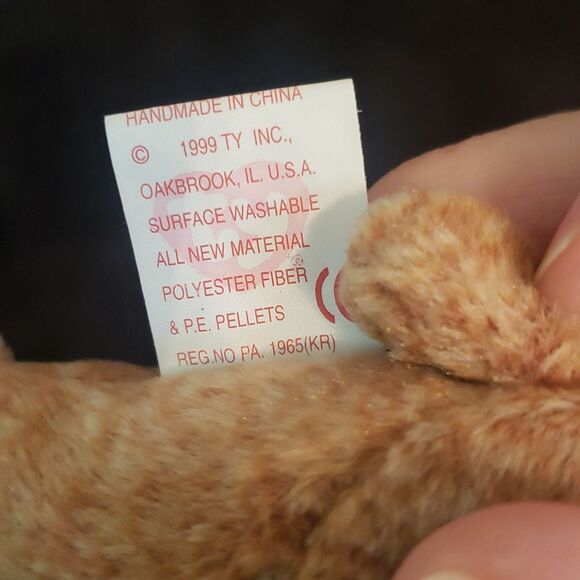 HANDMADE IN CHINA
© 1999 TY INC.,
OAKBROOK, IL. U.S.A.
SURFACE WASHABLE
ALL NEW MATERIAL
POLYESTER FIBER ®
& P.E. PELLETS
REG.NO PA. 1965(KR)